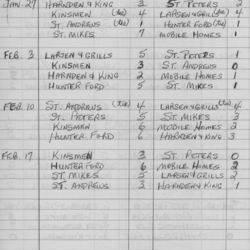 JAN. 27 HARNDEN & KING 3 ST. PETERS 2
KINSMEN (tie) 4 LARSEN & GRILLS (tie) 4
ST. ANDREWS (tie) 4 HUNTER FORD (tie) 4
ST. MIKES 7 MOBILE HOMES 1
FEB. 3 LARSEN & GRILLS 5 ST. PETERS 1
KINSMEN 3 ST. ANDREWS 0
HARNDEN & KING 2 MOBILE HOMES 1
HUNTER FORD 5 ST. MIKES 1
FEB. 10 ST. ANDREWS (tie) 4 LARSEN & GRILLS (tie) 4
ST. PETERS 5 ST. MIKES 3
KINSMEN 6 MOBILE HOMES 2
HUNTER FORD 6 HARNDEN & KING 3
FEB. 17 KINSMEN 3 ST. PETERS 0
HUNTER FORD 6 MOBILE HOMES 2
ST. MIKES 5 LARSEN & GRILLS 2
ST. ANDREWS 3 HARNDEN & KING 1